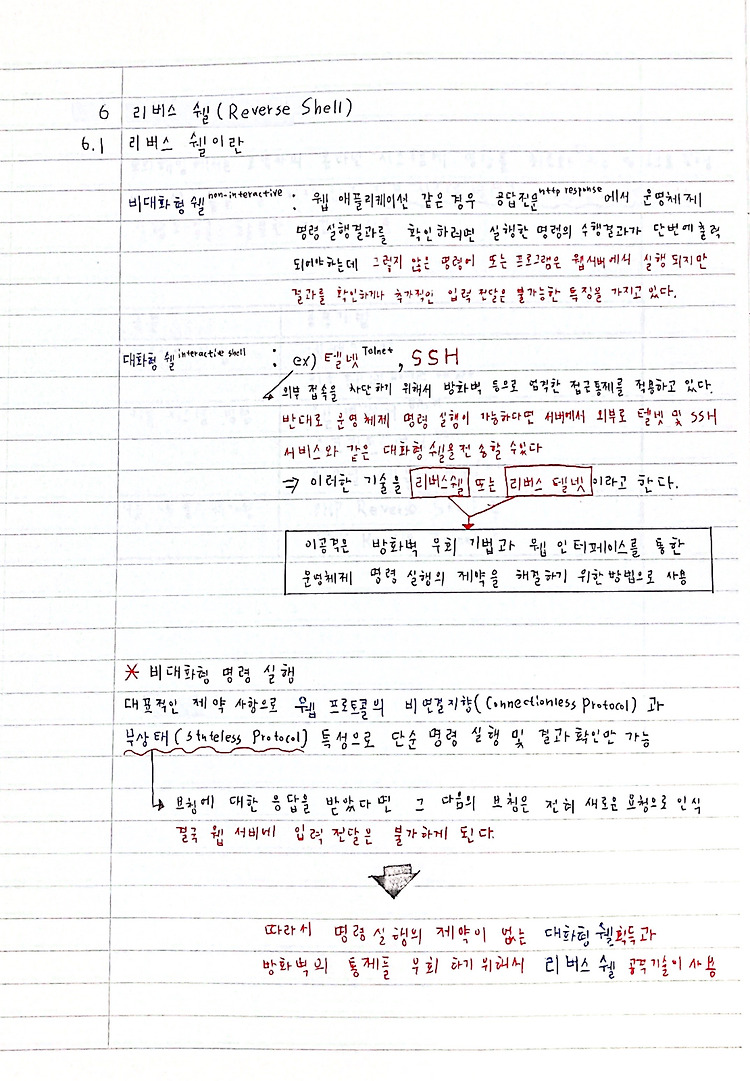 6 리버스 쉘(Reverse Shell)
6.1 리버스 쉘이란
비대화형쉘 non-interactive : 웹 애플리케이션 같은경우 응답전문 http response 에서 운영체제
명령 실행결과를 확인하려면 실행한 명령의 수행결과가 단번에출력
되어야하는데 그렇지 않은 명령어 또는 프로그램은 웹서버에서 실행 되지만
결과를 확인하거나 추가적인 입력 전달은 불가능한 특징을 가지고 있다.
대화형 쉘 interactive shell : ex) 텔넷 Telnet, SSH
외부 접속을 차단하기 위해서 방화벽 등으로 엄격한 접근통제를 적용하고 있다.
반대로 운영체제 명령 실행이 가능하다면 서버에서 외부로 텔넷 및 SSH
서비스와 같은 대화형쉘을전송할 수있다
⇒ 이러한 기술을 리버스쉘 또는 리버스 텔넷 이라고 한다.
이공격은 방화벽 우회 기법과 웹 인터페이스를 통한
운영체제 명령 실행의 제약을 해결하기 위한방법으로 사용
* 비대화형 명령 실행
대표적인 제약 사항으로 웹 프로토콜의 비연결지향(Connectionless Protocol)과
부상태(Stateless Protocol) 특성으로 단순 명령 실행 및 결과확인만 가능
요청에 대한 응답을 받았다면 그 다음의 요청은 전혀 새로운 요청으로 인식
결국 웹 서비에 입력 전달은 불가하게 된다.
따라서 명령실행의 제약이 없는 대화형 쉘획득과
방화벽의 통제를 우회 하기위해서 리버스 쉘 공격기술이 사용